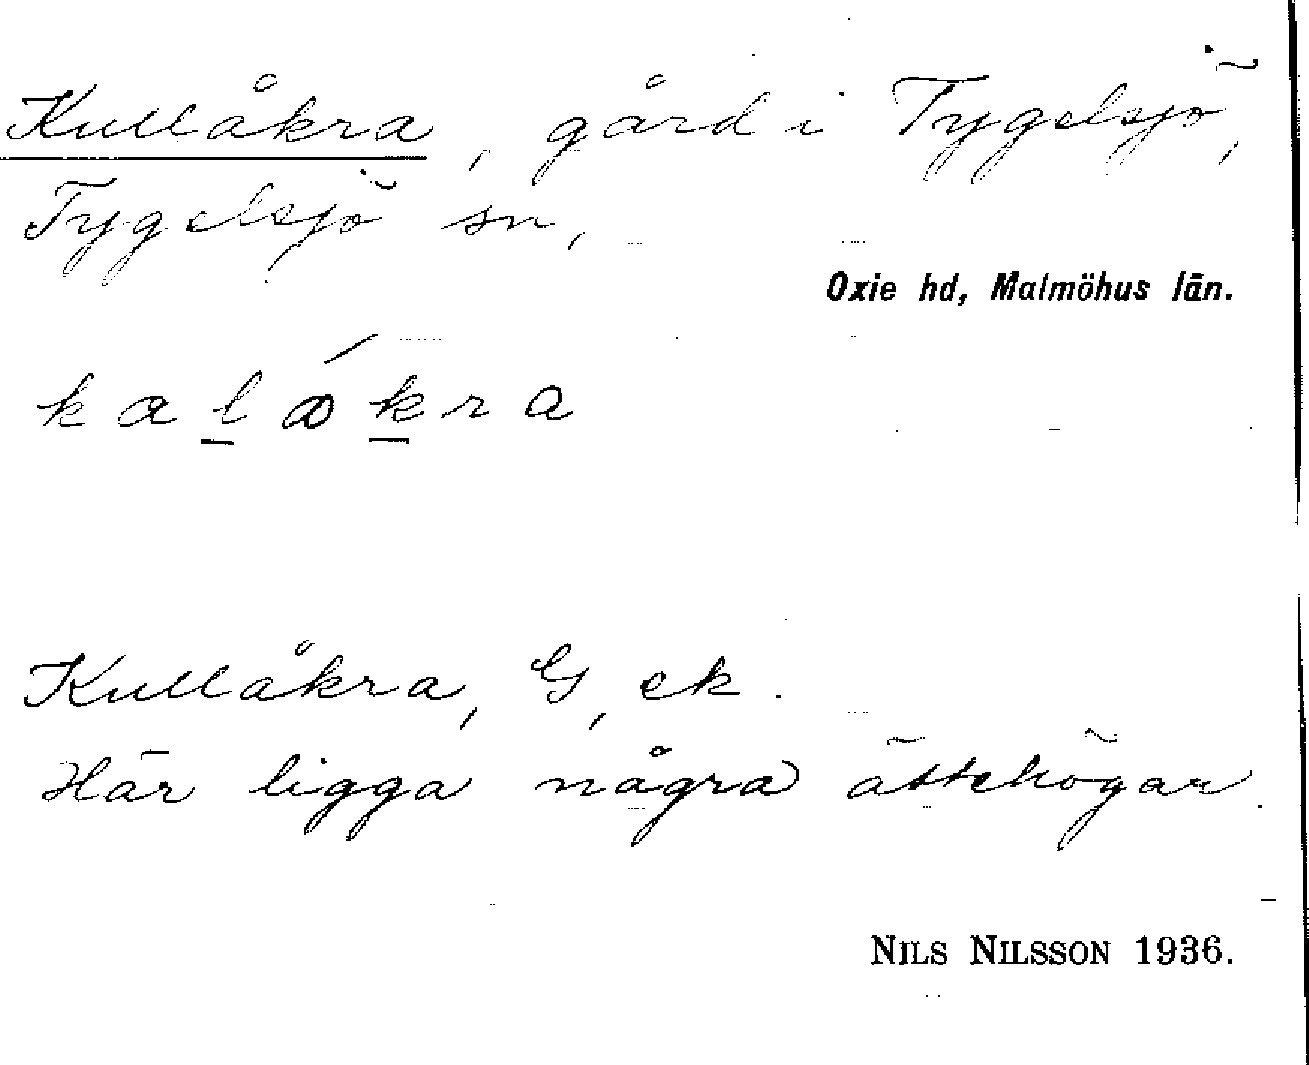 Kullåkra, gård i Tygelsjö,
Tygelsjö sn,
Oxie hd, Malmöhus län.
Kullåkra, G, ek.
Här ligga några ättehögar.
NILS NILSSON 1936.